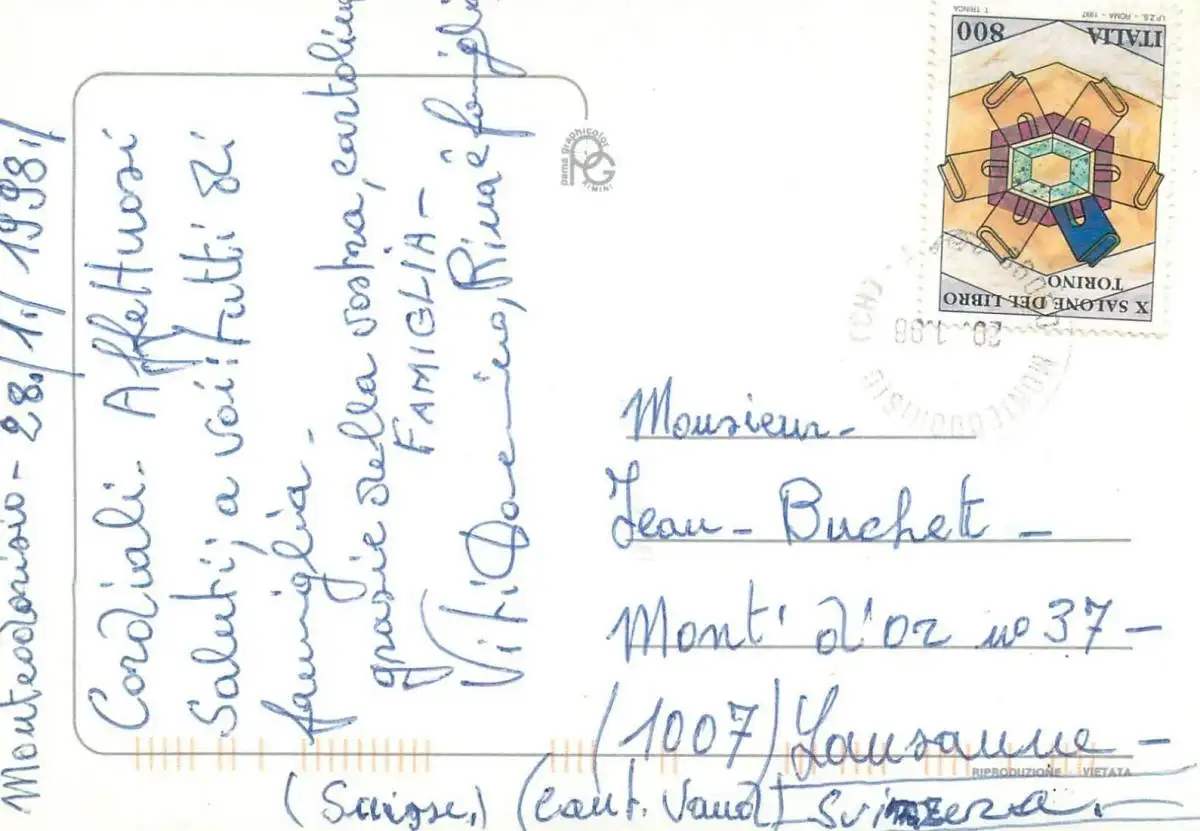 Monteodorisio - 28./1./1998./
Cordiali. Affettuosi
Saluti, a voi: tutti di
famiglia -
grazie della vostra, cartolina
FAMIGLIA -
Viti Domenico, Rina e famiglia
pama graphicolor
PG
RIMINI
T. TRINCA
I.P.Z.S. - ROMA - 1997
ITALIA
800
X SALONE DEL LIBRO
TORINO
MONTEODORISIO
(CH)
Monsieur -
Jean - Buchet -
Mont' d'or nº 37 -
(1007) Lausanne -
RIPRODUZIONE VIETATA
(Suisse,) (cant. Vaud) Svizzera. -